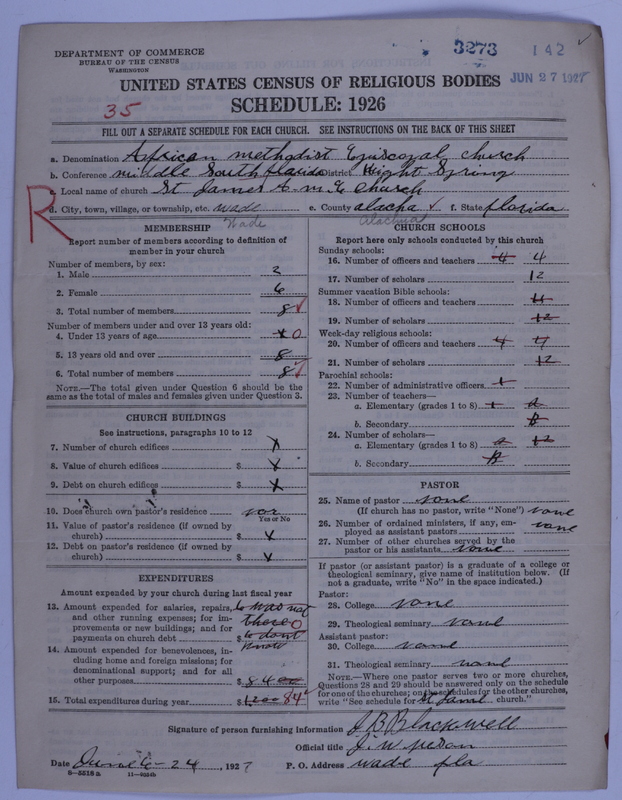 DEPARTMENT OF COMMERCE
BUREAU OF THE CENSUS
WASHINGTON
3273
142
JUN 27 1927
UNITED STATES CENSUS OF RELIGIOUS BODIES
SCHEDULE: 1926
35
FILL OUT A SEPARATE SCHEDULE FOR EACH CHURCH. SEE INSTRUCTIONS ON THE BACK OF THIS SHEET
a. Denomination African methdist Episcopal church
b. Conference middle South florida District Hight Spring
R
c. Local name of church St James A. m. E church
d. City, town, village, or township, etc. wade e. County alacha f. State florida
Wade Alachua
MEMBERSHIP
Report number of members according to definition of member in your church
Number of members, by sex:
1. Male 2
2. Female 6
3. Total number of members 8
Number of members under and over 13 years old:
4. Under 13 years of age x 0
5. 13 years old and over 8
6. Total number of members 8
NOTE.—The total given under Question 6 should be the
same as the total of males and females given under Question 3.
CHURCH BUILDINGS
See instructions, paragraphs 10 to 12
7. Number of church edifices x
8. Value of church edifices $ x
9. Debt on church edifices $ x
10. Does church own pastor's residence
Yes or No
11. Value of pastor's residence (if owned by
church) $ x
12. Debt on pastor's residence (if owned by
church) $ x
EXPENDITURES
Amount expended by your church during last fiscal year
13. Amount expended for salaries, repairs, was not
and other running expenses; for im- there 0
provements or new buildings; and for
payments on church debt $ to dont
know
14. Amount expended for benevolences, in-
cluding home and foreign missions; for
denominational support; and for all
other purposes $ 8400
15. Total expenditures during year $ 1200 84
CHURCH SCHOOLS
Report here only schools conducted by this church
Sunday schools:
16. Number of officers and teachers 4 4
17. Number of scholars 12
Summer vacation Bible schools:
18. Number of officers and teachers 4
19. Number of scholars 12
Week-day religious schools:
20. Number of officers and teachers 4 4
21. Number of scholars 12
Parochial schools:
22. Number of administrative officers
23. Number of teachers—
a. Elementary (grades 1 to 8) a
b. Secondary B
24. Number of scholars—
a. Elementary (grades 1 to 8) a 12
b. Secondary B
PASTOR
25. Name of pastor none
(If church has no pastor, write "None") none
26. Number of ordained ministers, if any, em-
ployed as assistant pastors none
27. Number of other churches served by the
pastor or his assistants none
If pastor (or assistant pastor) is a graduate of a college or
theological seminary, give name of institution below. (If
not a graduate, write "No" in the space indicated.)
Pastor:
28. College none
29. Theological seminary none
Assistant pastor:
30. College none
31. Theological seminary none
NOTE.—Where one pastor serves two or more churches,
Questions 28 and 29 should be answered only on the schedule
for one of the churches; on the schedules for the other churches,
write "See schedule for St James church."
Signature of person furnishing information J B Blackwell
Official title
Date June 6-24, 1927 P. O. Address wade fla
8—5518 a 11—9024b